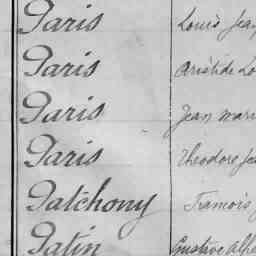 Paris Louis Jea
Paris Aristide Lo
Paris Jean Mari
Paris Theodore Je
Patchony Francois
Patin Gustave Alph